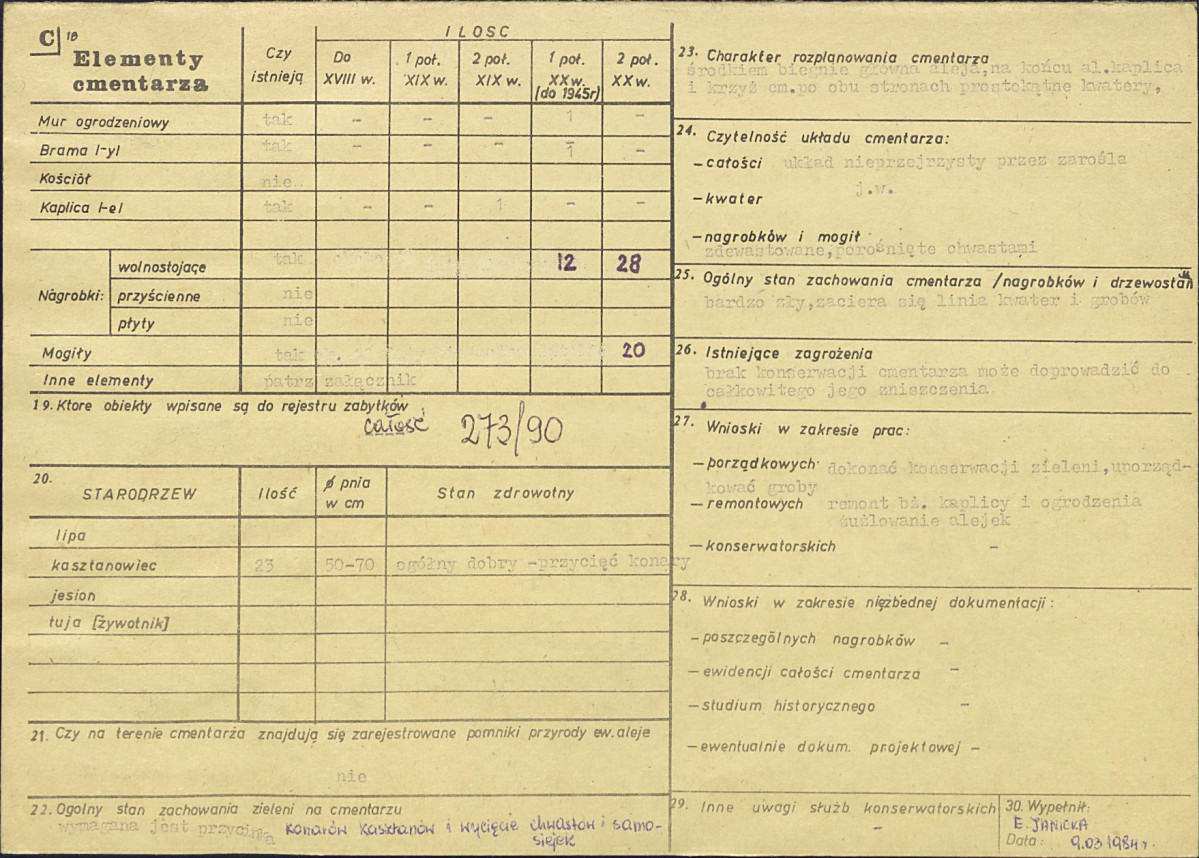 C 18
Elementy cmentarza
Czy istnieją
ILOSC
Do XVIII w.
1 poł. XIX w.
2 poł. XIX w.
1 poł. XX w. (do 1945r)
2 poł. XX w.
Mur ogrodzeniowy tak - - - 1 -
Brama I-yl tak - - - 1 -
Kościół nie
Kaplica I-el tak - - 1 - -
Nagrobki: wolnostojące tak 12 28
przyścienne nie
płyty nie
Mogiły tak ok. 20
Inne elementy patrz załącznik
19. Ktore obiekty wpisane są do rejestru zabytków
całość 273/90
20. STARODRZEW Ilość ø pnia w cm Stan zdrowotny
lipa
kasztanowiec 23 50-70 ogólny dobry -przycięć konary
jesion
tuja [żywotnik]
21. Czy na terenie cmentarza znajdują się zarejestrowane pomniki przyrody ew. aleje
nie
22. Ogolny stan zachowania zieleni na cmentarzu
wymagana jest przycinka konarów kasztanów i wycięcie chwastów i samo-
siejek
23. Charakter rozplanowania cmentarza
środkiem biegnie główna aleja,na końcu al.kaplica
i krzyż cm.po obu stronach prostokątne kwatery,
24. Czytelność układu cmentarza:
- całości układ nieprzejrzysty przez zarośla
- kwater j.w.
- nagrobków i mogił
zdewastowane,porośnięte chwastami
25. Ogólny stan zachowania cmentarza /nagrobków i drzewostan
bardzo zły,zaciera się linia kwater i grobów
26. Istniejące zagrożenia
brak konserwacji cmentarza może doprowadzić do
całkowitego jego zniszczenia
27. Wnioski w zakresie prac:
- porządkowych dokonać konserwacji zieleni,uporząd-
kować groby
- remontowych remont bż. kaplicy i ogrodzenia
żużlowanie alejek
- konserwatorskich -
28. Wnioski w zakresie niezbednej dokumentacji:
- poszczególnych nagrobków -
- ewidencji całości cmentarza -
- studium historycznego -
- ewentualnie dokum. projektowej -
29. Inne uwagi służb konserwatorskich
-
30. Wypełnił:
E. JANICKA
Data: 9.03 1984 r.